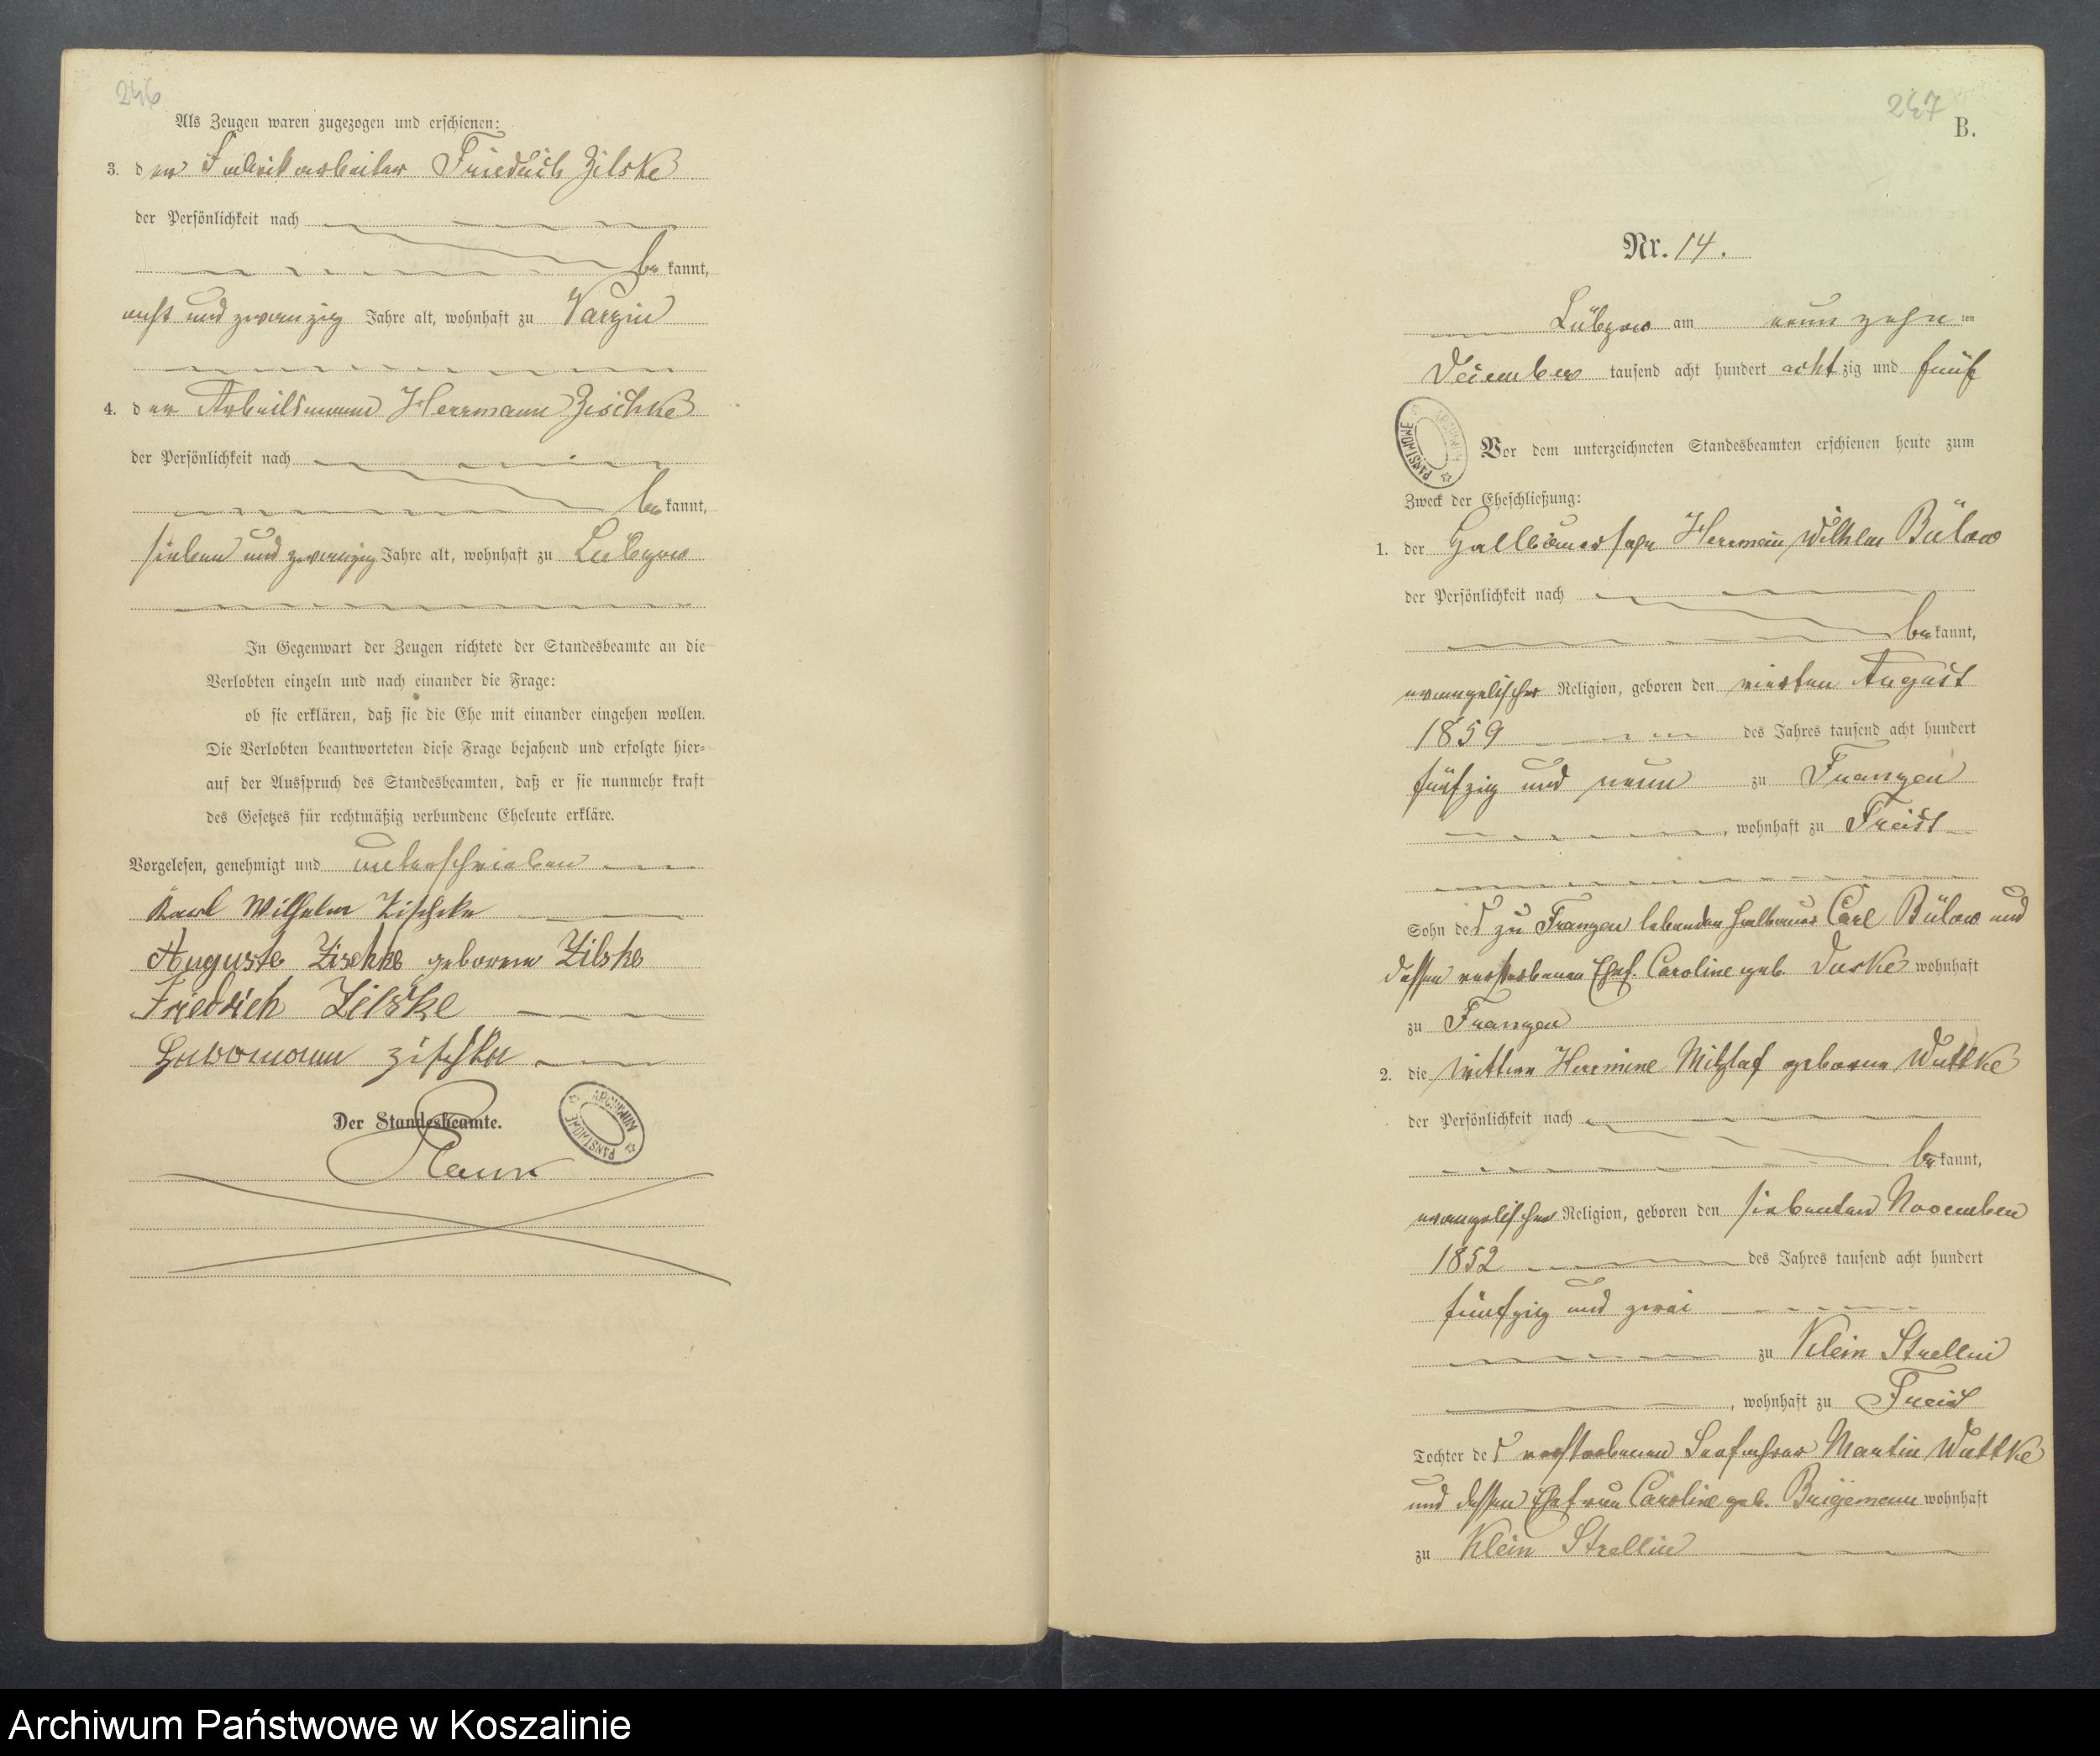 246
Als Zeugen waren zugezogen und erschienen:
3. der Fabrikarbeiter Friedrich Zilske
der Persönlichkeit nach
be kannt,
acht und zwanzig Jahre alt, wohnhaft zu Varzin
4. der Arbeitsmann Herrmann Zischke
der Persönlichkeit nach
be kannt,
sieben und zwanzig Jahre alt, wohnhaft zu Lübzow
In Gegenwart der Zeugen richtete der Standesbeamte an die
Verlobten einzeln und nach einander die Frage:
ob sie erklären, daß sie die Ehe mit einander eingehen wollen.
Die Verlobten beantworteten diese Frage bejahend und erfolgte hier-
auf der Ausspruch des Standesbeamten, daß er sie nunmehr kraft
des Gesetzes für rechtmäßig verbundene Eheleute erkläre.
Vorgelesen, genehmigt und unterschrieben
Karl Wilhelm Zischke
Auguste Zischke geborene Zilske
Friedrich Zilske
Herrmann Zischke
Der Standesbeamte.
ARCHIWUM PAŃSTWOWE
247
B.
Nr. 14.
Lübzow am neun zehn ten
December tausend acht hundert acht zig und fünf
ARCHIWUM PAŃSTWOWE
Vor dem unterzeichneten Standesbeamten erschienen heute zum
Zweck der Eheschließung:
1. der Halbbauersohn Herrmann Wilhelm Bülow
der Persönlichkeit nach
be kannt,
evangelischer Religion, geboren den vierten August
1859 des Jahres tausend acht hundert
fünfzig und neun zu Franzen
, wohnhaft zu Freist
Sohn des zu Franzen lebenden Halbbauer Carl Bülow und
dessen verstorbenen Ehef. Caroline geb. Darke wohnhaft
zu Franzen
2. die Wittwe Hermine Mitzlaf geborene Wuttke
der Persönlichkeit nach
be kannt,
evangelischer Religion, geboren den siebenten November
1852 des Jahres tausend acht hundert
fünfzig und zwei
zu Klein Strellin
, wohnhaft zu Freist
Tochter des verstorbenen Martin Wuttke
und dessen Ehefrau Caroline geb. Brigemann wohnhaft
zu Klein Strellin
Archiwum Państwowe w Koszalinie